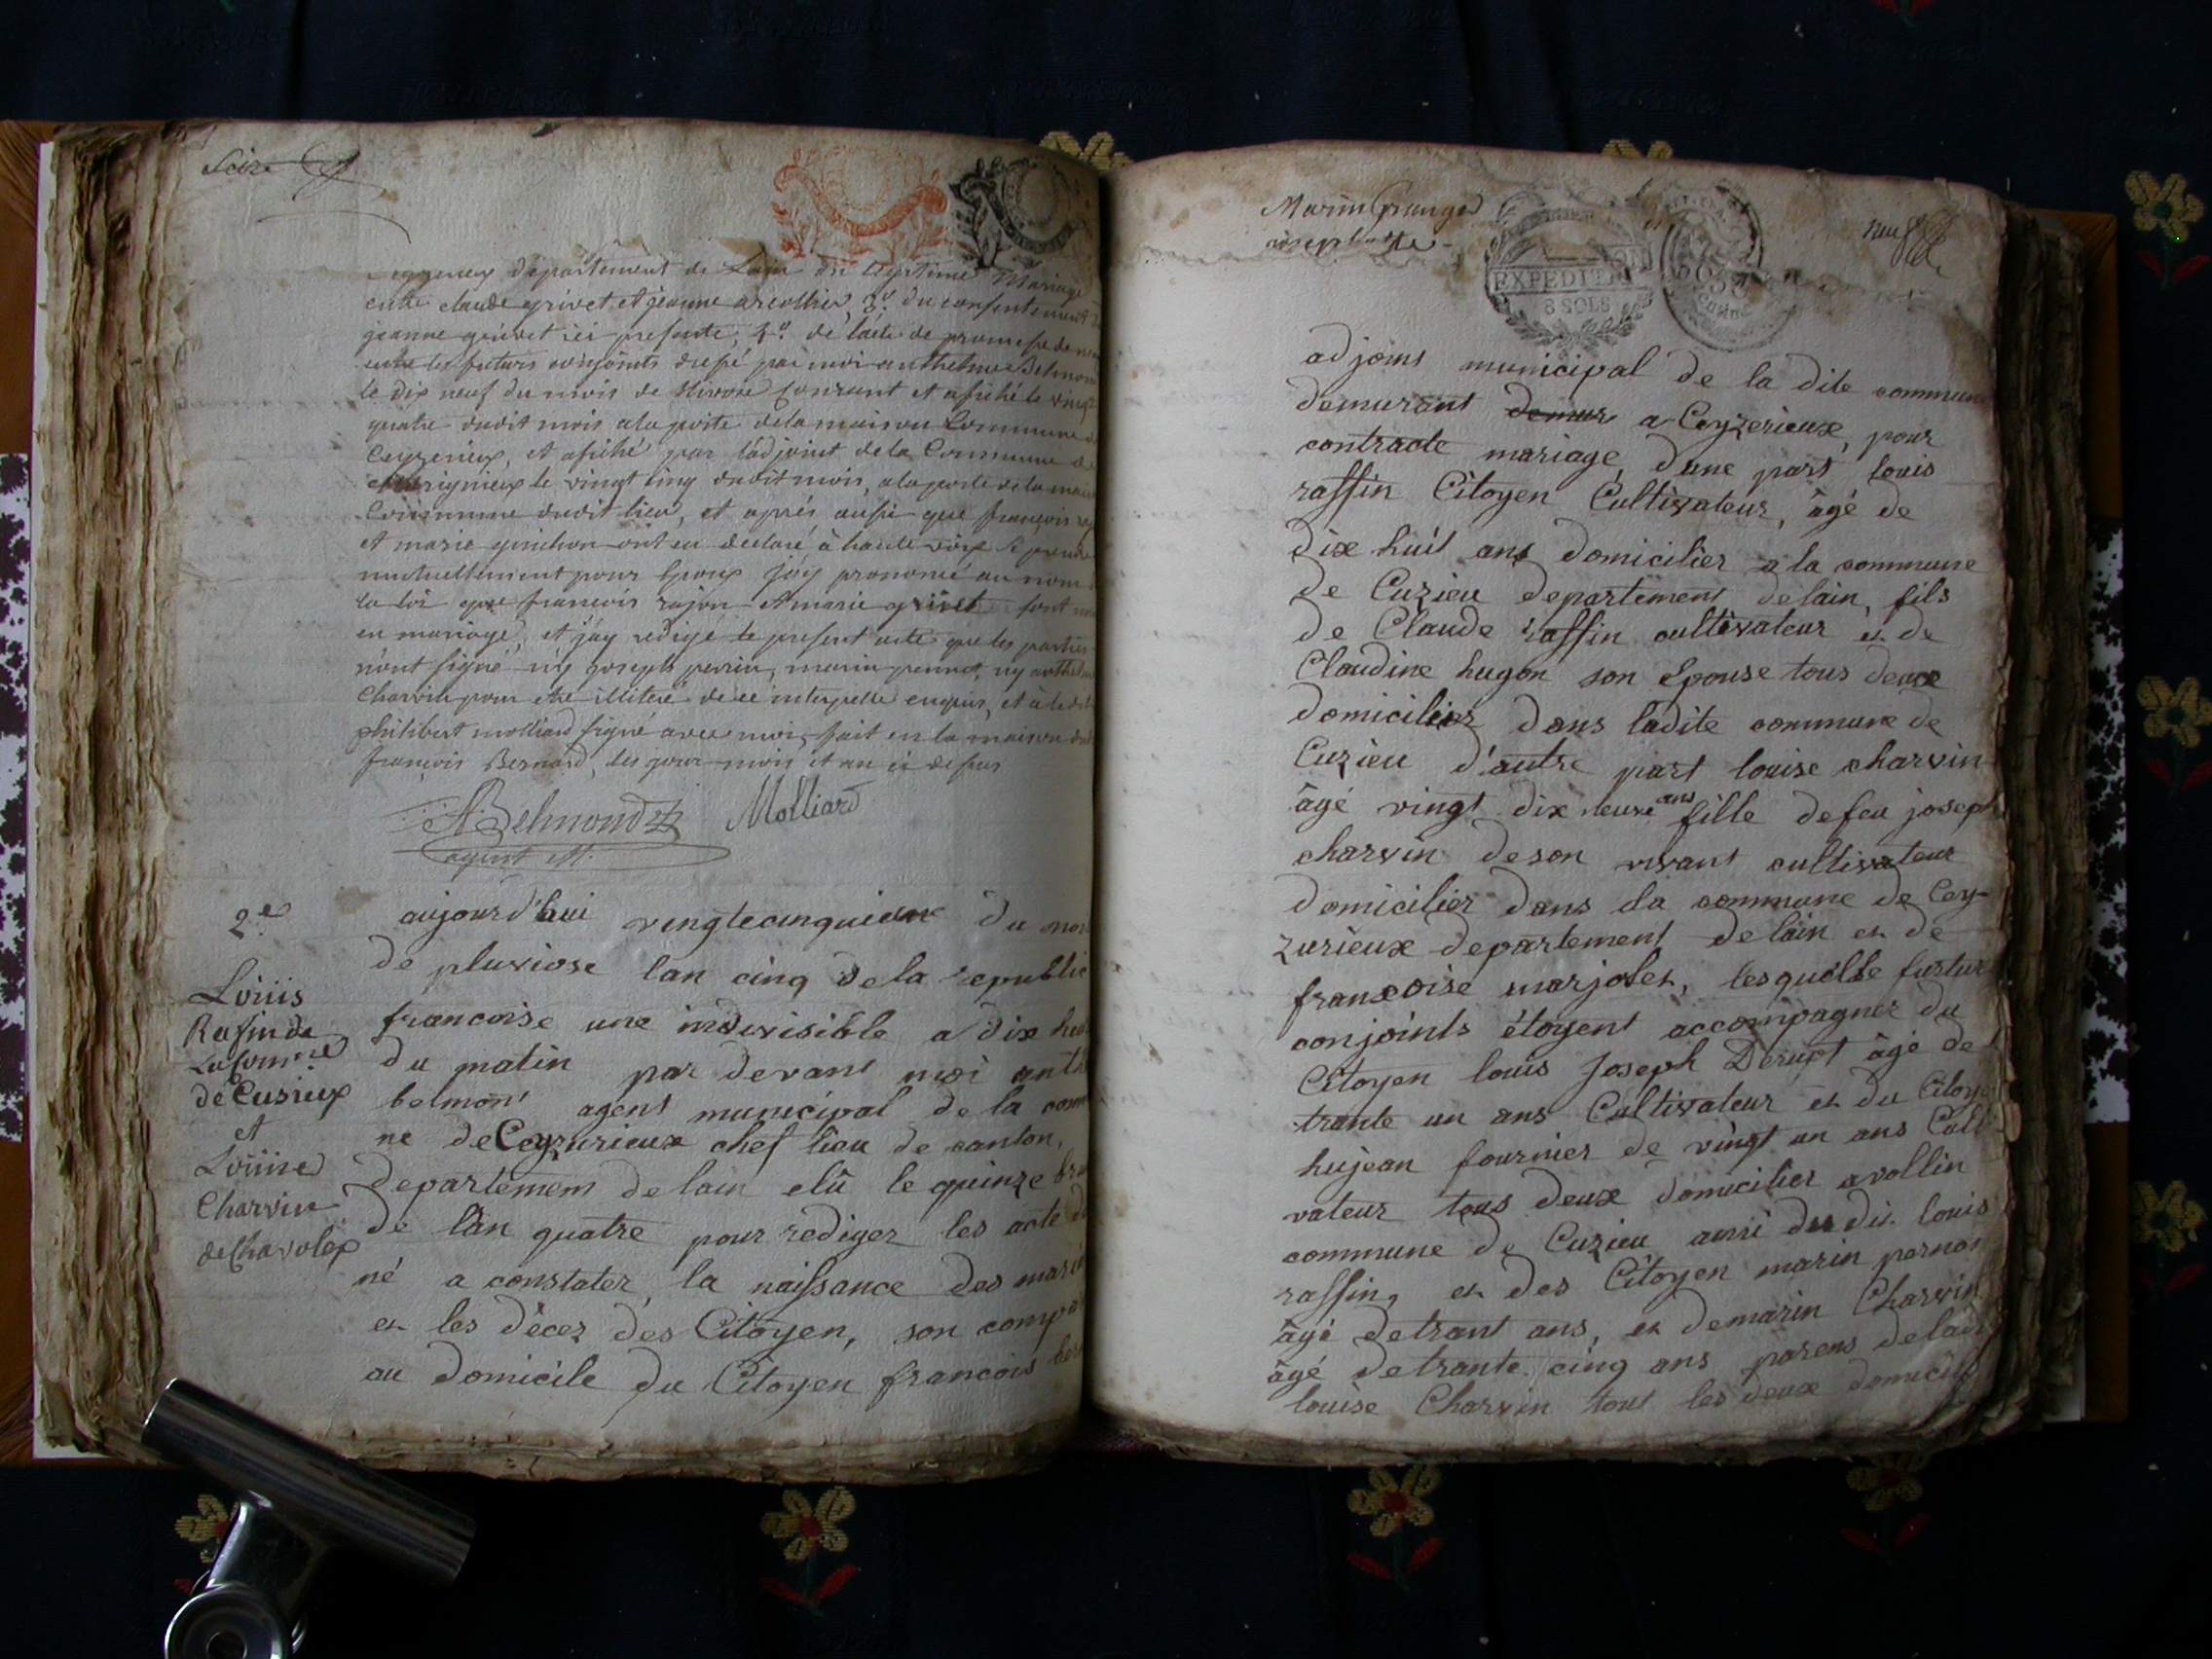 Seize
eyzerieux departement de Lain en legitime Mariage
entre claude grivet et jeanne arcollier, 3.º du consentement
jeanne grivet ici presente, 4.º de lacte de promesse de
entre les futurs conjoints dressé par moi anthelme Belmond
le dix neuf du mois de Nivose courant et afiché le vingt
quatre dudit mois a la porte de la maison Commune de
Ceyzerieux, et afiché par l'adjoint de la Commune de
le vingt cinq dudit mois, a la porte de la
Commune dudit lieu, et après aussi que françois
et marie guichon ont eu declaré à haute voix se prendre
mutuellement pour Epoux j'ay prononcé au nom
la loi que françois rajon et marie grivet sont
en mariage, et j'ay redigé le present acte que les parties
n'ont signé ny joseph perrin, marin pernot, ny
Charvin pour etre illiteré de ce interpellé enquis, et
philibert molliard signé avec moi, fait en la maison
françois Bernard, les jour mois et an ci dessus
ABelmond Molliard
agent M.
2.e
aujourd'hui vingtecinquieme du
de pluviose lan cinq de la republic
francoise une indivisible a dix
du matin par devant moi
belmont agent municipal de la
ne de Ceyzurieux chef lieu de canton,
departement de lain elû le quinze
de l'an quatre pour rediger les acte
né a constater la naissance des
et les décez des Citoyen, son
au domicile du Citoyen francois
Louis
Rafin de
La comme
de Cusieux
et
Louise
Charvin
de Chavolex
Marin Granged
neuf
EXPEDITION
8 SOLS
adjoint municipal de la dite commune
demurant demur a Ceyzerieux, pour
contracte mariage, dune part louis
raffin Citoyen Cultivateur, âgé de
dix huit ans domicilier a la commune
de Cuzieu departement de lain, fils
de Claude raffin cultivateur et de
Claudine hugon son Epouse tous deux
domicilier dans ladite commune de
Cuzieu d'autre part louise charvin
âgé vingt dix neuve ans fille de feu joseph
charvin de son vivant cultivateur
domicilier dans la commune de Cey-
zurieux departement de lain et de
francoise marjolet, lesquelle furtur
conjoints étoyent accompagner du
Citoyen louis Joseph Derupt âgé de
trante un ans Cultivateur et du Citoye
hujean fournier de vingt un ans Culi
vateur tous deux domicilier a vollin
commune de Cuzieu ami du dit louis
raffin, et des Citoyen marin pernot
âgé de trant ans, et de marin Charvin
âgé de trante cinq ans parens de
louise Charvin tout les deux